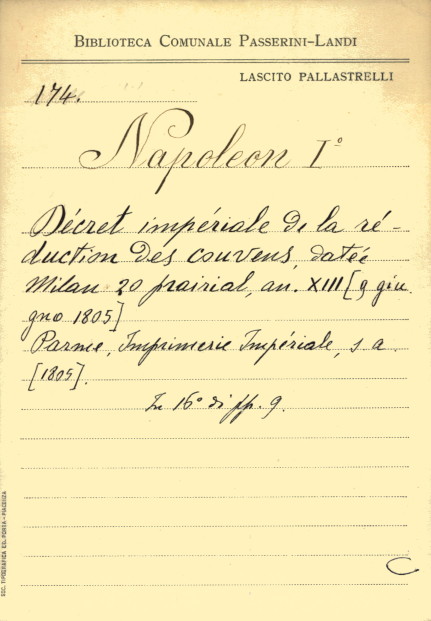 BIBLIOTECA COMUNALE PASSERINI-LANDI
LASCITO PALLASTRELLI
174.
Napoleon I°
Décret impériale de la ré-
duction des couvens, datée
Milan 20 prairial, an. XIII [9 giu
gno 1805]
Parme, Imprimerie Impériale, s a
[1805].
In 16° di pp. 9.
C
SOC. TIPOGRAFICA ED. PORTA - PIACENZA